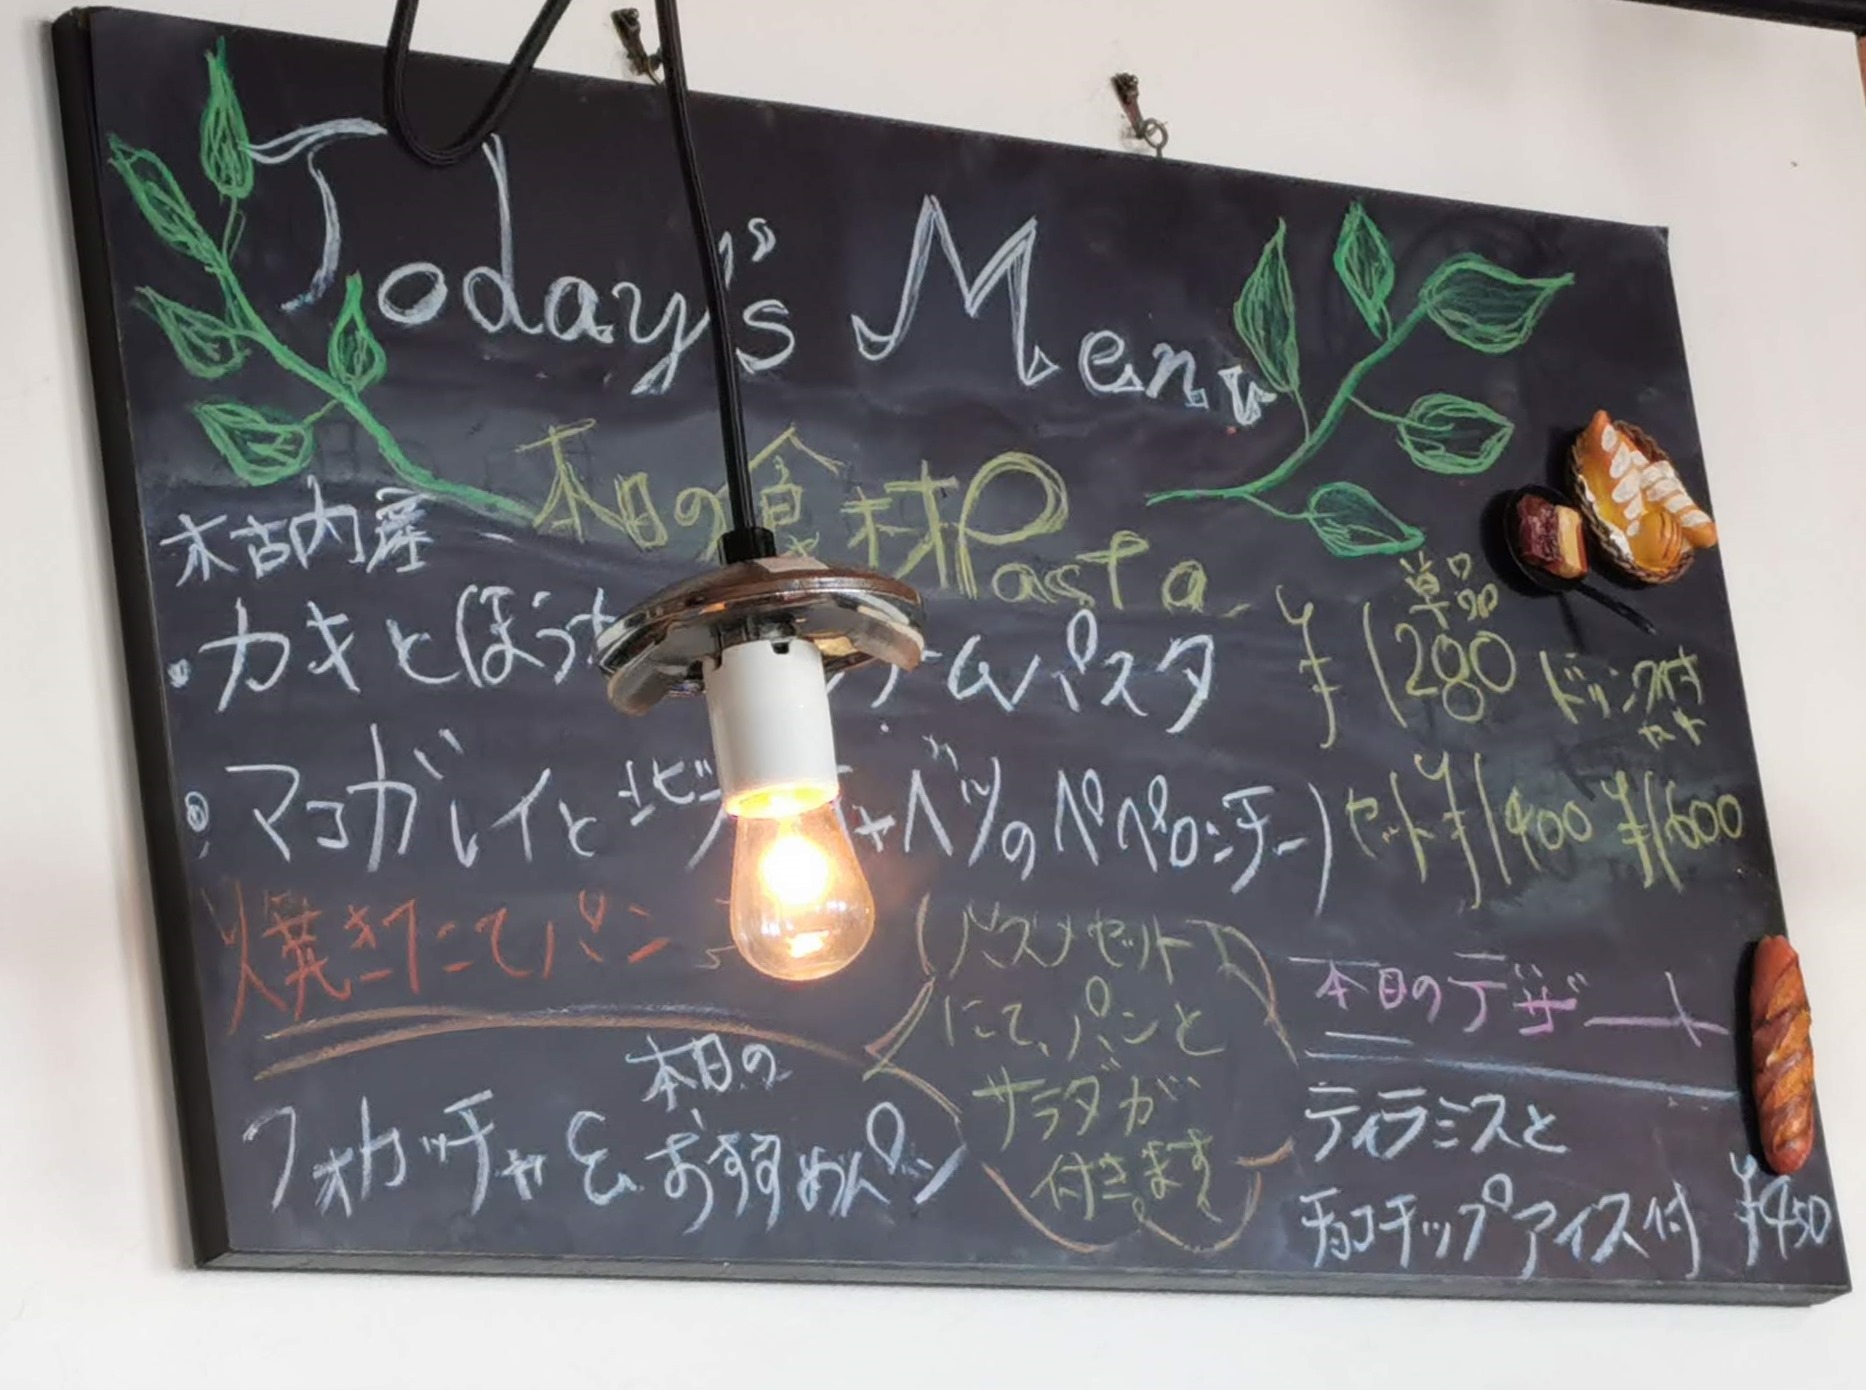 Today's Menu
本日の食材Pasta
木古内産
・カキとほう ムパスタ
単品
¥1280
ドリンク付
・マコガレイと ャベツのペペロンチーノ
セット¥1400 ¥1600
焼きたてパン
パスタセット
にて、パンと
サラダが
付きます
本日のデザート
フォカッチャ& 本日の
おすすめパン
ティラミスと
チョコチップアイス付 ¥450